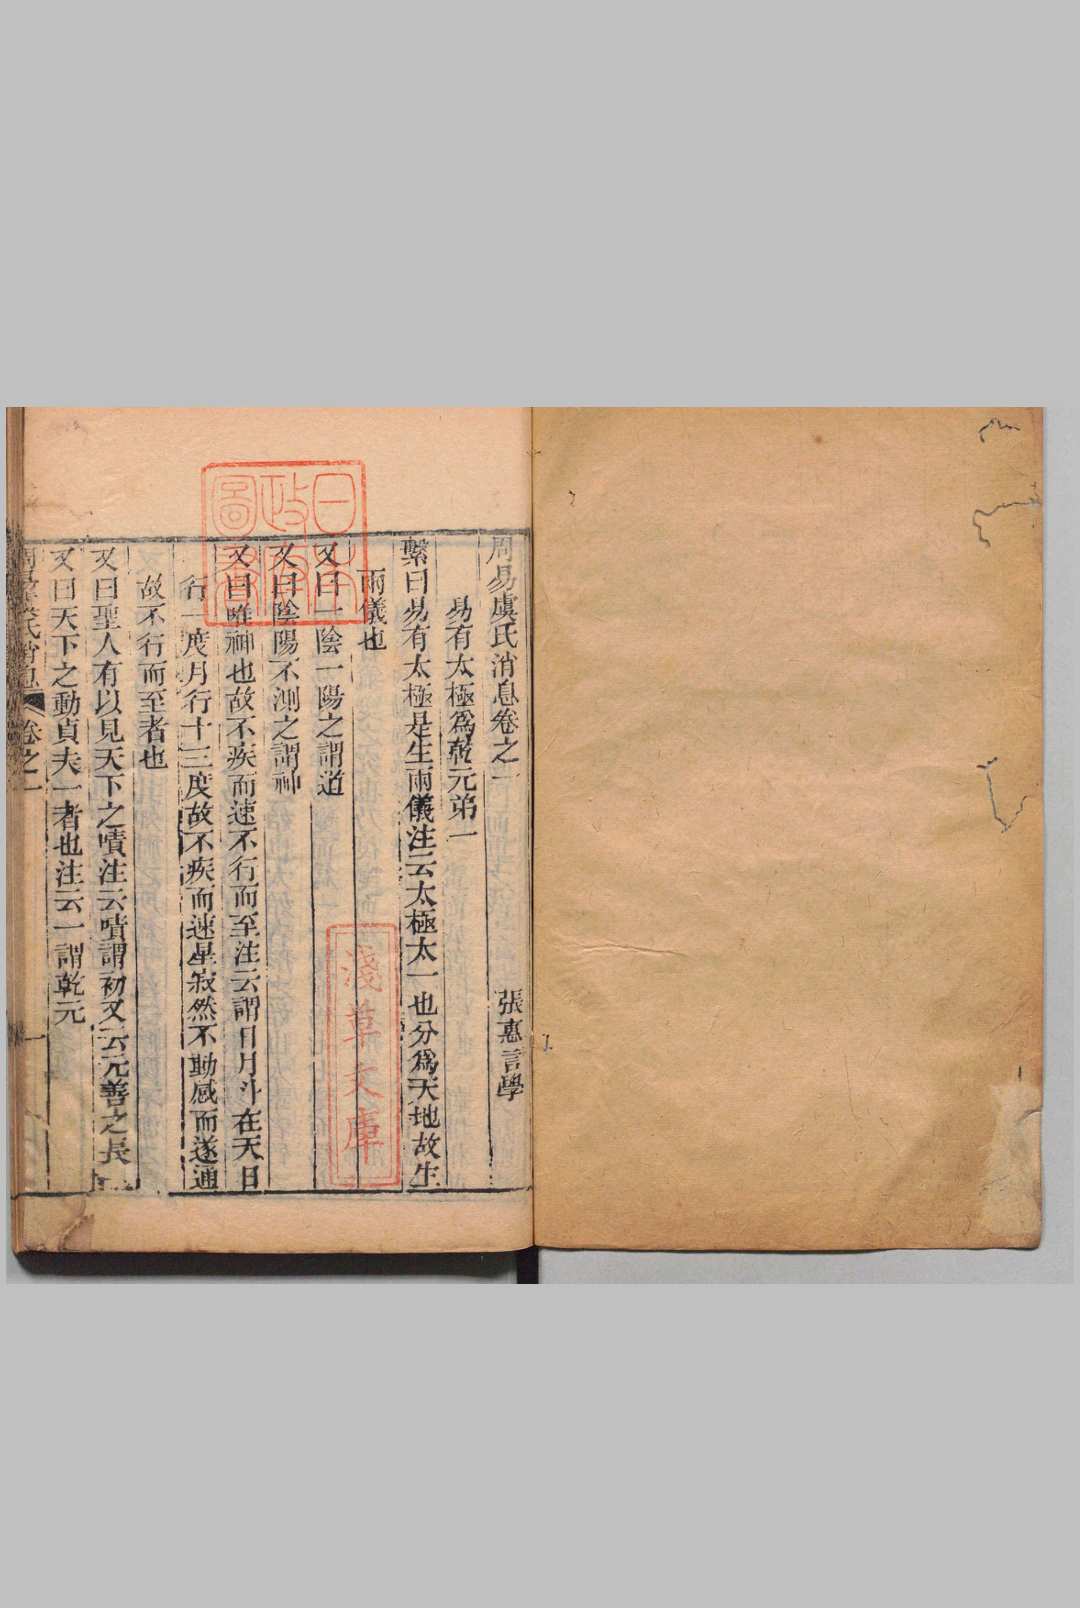 周易虞氏消息卷之一
張惠言學
易有太極爲乾元弟一
繫曰易有太極是生兩儀注云太極太一也分爲天地故生
兩儀也
又曰一陰一陽之謂道
又曰陰陽不測之謂神
又曰唯神也故不疾而速不行而至注云謂日月斗在天日
行一度月行十三度故不疾而速星寂然不動感而遂通
故不行而至者也
又曰聖人有以見天下之嘖注云嘖謂初又云元善之長
又曰天下之動貞夫一者也注云一謂乾元
周易虞氏消息 卷之一
一
日本
政府
圖書
淺草文庫